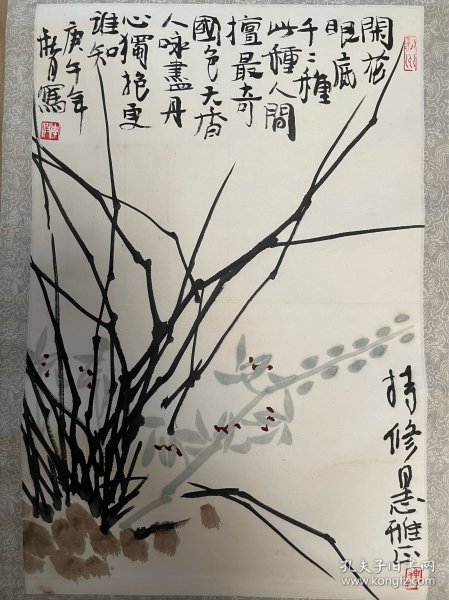 開花
眼底
千二種
此種人間
擅最奇
國色天香
人咏盡丹
心獨抱更
誰知
庚午年
寫
持修墨雅正
孔夫子旧书网